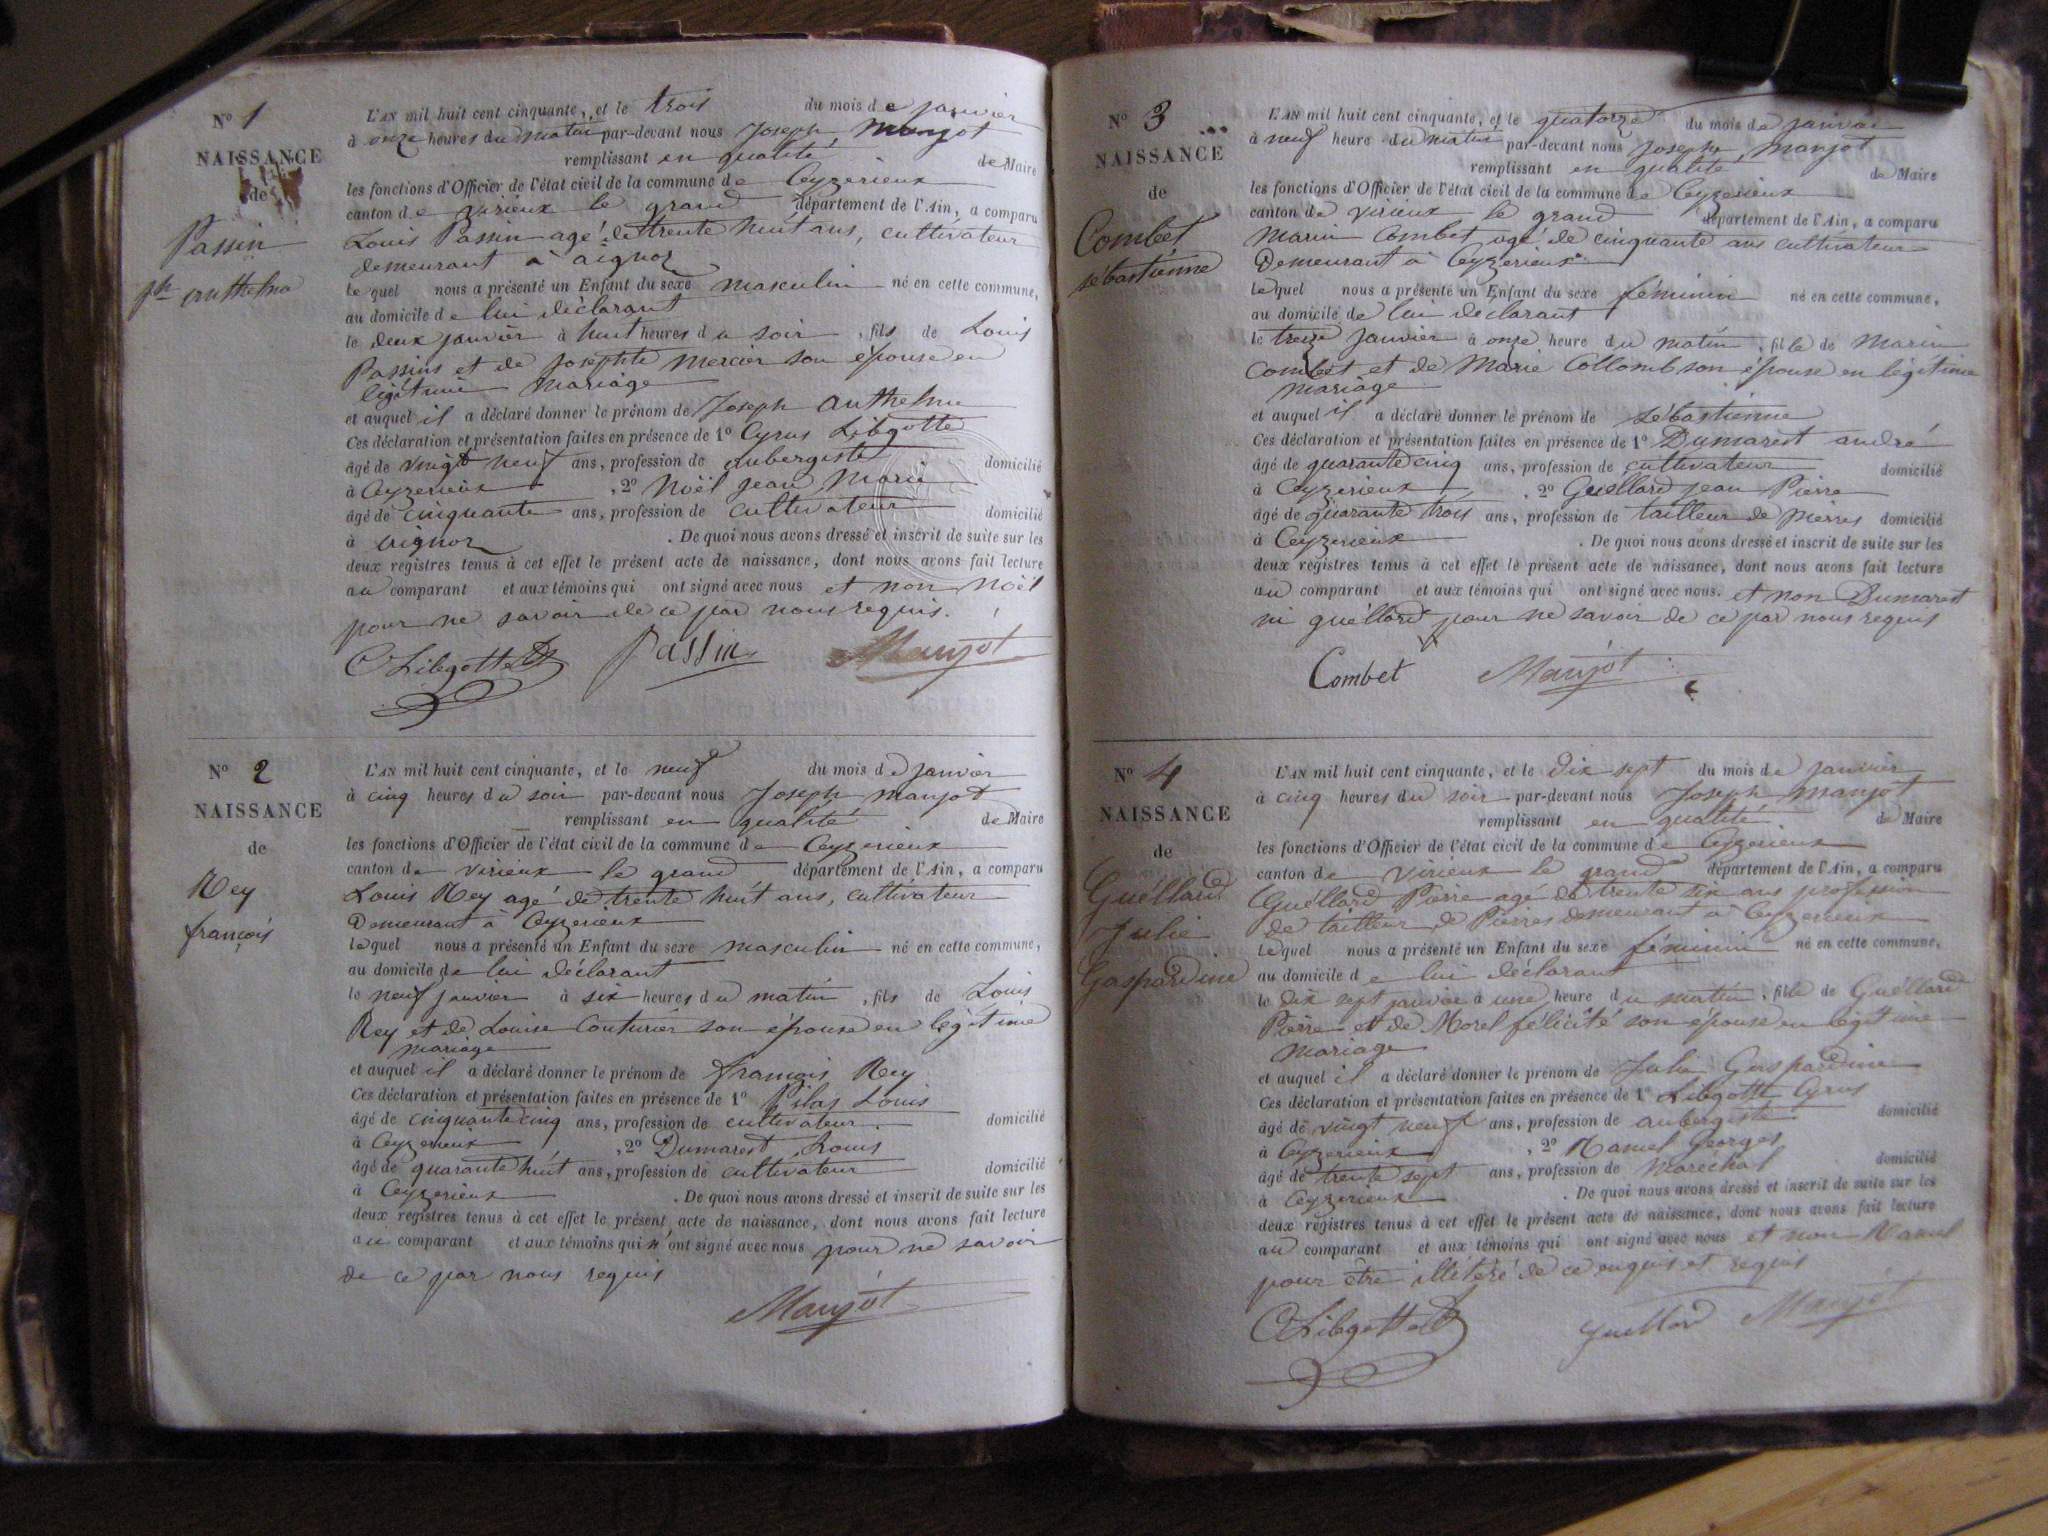 N° 1
NAISSANCE
de
Passin
ph anthelme
L'AN mil huit cent cinquante, et le trois du mois de janvier
à onze heures du matin par-devant nous Joseph Manjot
remplissant en qualité de Maire
les fonctions d'Officier de l'état civil de la commune de Ceyzerieux
canton de virieux le grand département de l'Ain, a comparu
Louis Passin agé de trente huit ans, cultivateur
demeurant à aignoz
lequel nous a présenté un Enfant du sexe masculin né en cette commune,
au domicile de lui déclarant
le deux janvier à huit heures du soir, fils de Louis
Passin et de Josephte Mercier son épouse en
légitime mariage
et auquel il a déclaré donner le prénom de Joseph anthelme
Ces déclaration et présentation faites en présence de 1° Cyrus Libgotte
âgé de vingt neuf ans, profession de aubergiste domicilié
à Ceyzerieux, 2° Noël jean Marie
âgé de cinquante ans, profession de cultivateur domicilié
à aignoz. De quoi nous avons dressé et inscrit de suite sur les
deux registres tenus à cet effet le présent acte de naissance, dont nous avons fait lecture
au comparant et aux témoins qui ont signé avec nous et non Noël
pour ne savoir de ce par nous requis.
C Libgotte Passin Manjot
N° 2
NAISSANCE
de
Rey
françois
L'AN mil huit cent cinquante, et le neuf du mois de janvier
à cinq heures du soir par-devant nous Joseph manjot
remplissant en qualité de Maire
les fonctions d'Officier de l'état civil de la commune de Ceyzerieux
canton de virieux le grand département de l'Ain, a comparu
Louis Rey agé de trente huit ans, cultivateur
Demeurant à Ceyzerieux
lequel nous a présenté un Enfant du sexe masculin né en cette commune,
au domicile de lui déclarant
le neuf janvier à six heures du matin, fils de Louis
Rey et de Louise Couturier son épouse en légitime
mariage
et auquel il a déclaré donner le prénom de françois Rey
Ces déclaration et présentation faites en présence de 1° Pilaz Louis
âgé de cinquante cinq ans, profession de cultivateur domicilié
à Ceyzerieux, 2° Dumarest Louis
âgé de quarante huit ans, profession de cultivateur domicilié
à Ceyzerieux. De quoi nous avons dressé et inscrit de suite sur les
deux registres tenus à cet effet le présent acte de naissance, dont nous avons fait lecture
au comparant et aux témoins qui n'ont signé avec nous pour ne savoir
de ce par nous requis
Manjot
N° 3
NAISSANCE
de
Combet
sébastienne
L'AN mil huit cent cinquante, et le quatorze du mois de janvier
à neuf heure du matin par-devant nous Joseph Manjot
remplissant en qualité de Maire
les fonctions d'Officier de l'état civil de la commune de Ceyzerieux
canton de virieux le grand département de l'Ain, a comparu
Marin Combet agé de cinquante ans cultivateur
Demeurant à Ceyzerieux
lequel nous a présenté un Enfant du sexe féminin né en cette commune,
au domicile de lui déclarant
le treize janvier à onze heure du matin, fille de Marin
Combet et de Marie Collomb son épouse en légitime
mariage
et auquel il a déclaré donner le prénom de sébastienne
Ces déclaration et présentation faites en présence de 1° Dumarest andré
âgé de quarante cinq ans, profession de cultivateur domicilié
à Ceyzerieux, 2° Guéllard jean Pierre
âgé de quarante trois ans, profession de tailleur de pierres domicilié
à Ceyzerieux. De quoi nous avons dressé et inscrit de suite sur les
deux registres tenus à cet effet le présent acte de naissance, dont nous avons fait lecture
au comparant et aux témoins qui ont signé avec nous. et non Dumarest
ni guéllard pour ne savoir de ce par nous requis
Combet Manjot
N° 4
NAISSANCE
de
Guéllard
Julie
Gaspardine
L'AN mil huit cent cinquante, et le dix sept du mois de janvier
à cinq heures du soir par-devant nous Joseph manjot
remplissant en qualité de Maire
les fonctions d'Officier de l'état civil de la commune de Ceyzerieux
canton de virieux le grand département de l'Ain, a comparu
Guéllard Pierre agé de trente six ans profession
de tailleur de Pierres demeurant à Ceyzerieux
lequel nous a présenté un Enfant du sexe féminin né en cette commune,
au domicile de lui déclarant
le dix sept janvier à une heure du matin, fille de Guéllard
Pierre et de Morel félicité son épouse en légitime
mariage
et auquel il a déclaré donner le prénom de Julie Gaspardine
Ces déclaration et présentation faites en présence de 1° Libgotte Cyrus
âgé de vingt neuf ans, profession de aubergiste domicilié
à Ceyzerieux, 2° Ramel Georges
âgé de trente sept ans, profession de maréchal domicilié
à Ceyzerieux. De quoi nous avons dressé et inscrit de suite sur les
deux registres tenus à cet effet le présent acte de naissance, dont nous avons fait lecture
au comparant et aux témoins qui ont signé avec nous et non Ramel
pour être illitéré de ce enquis et requis
C Libgotte guellard Manjot